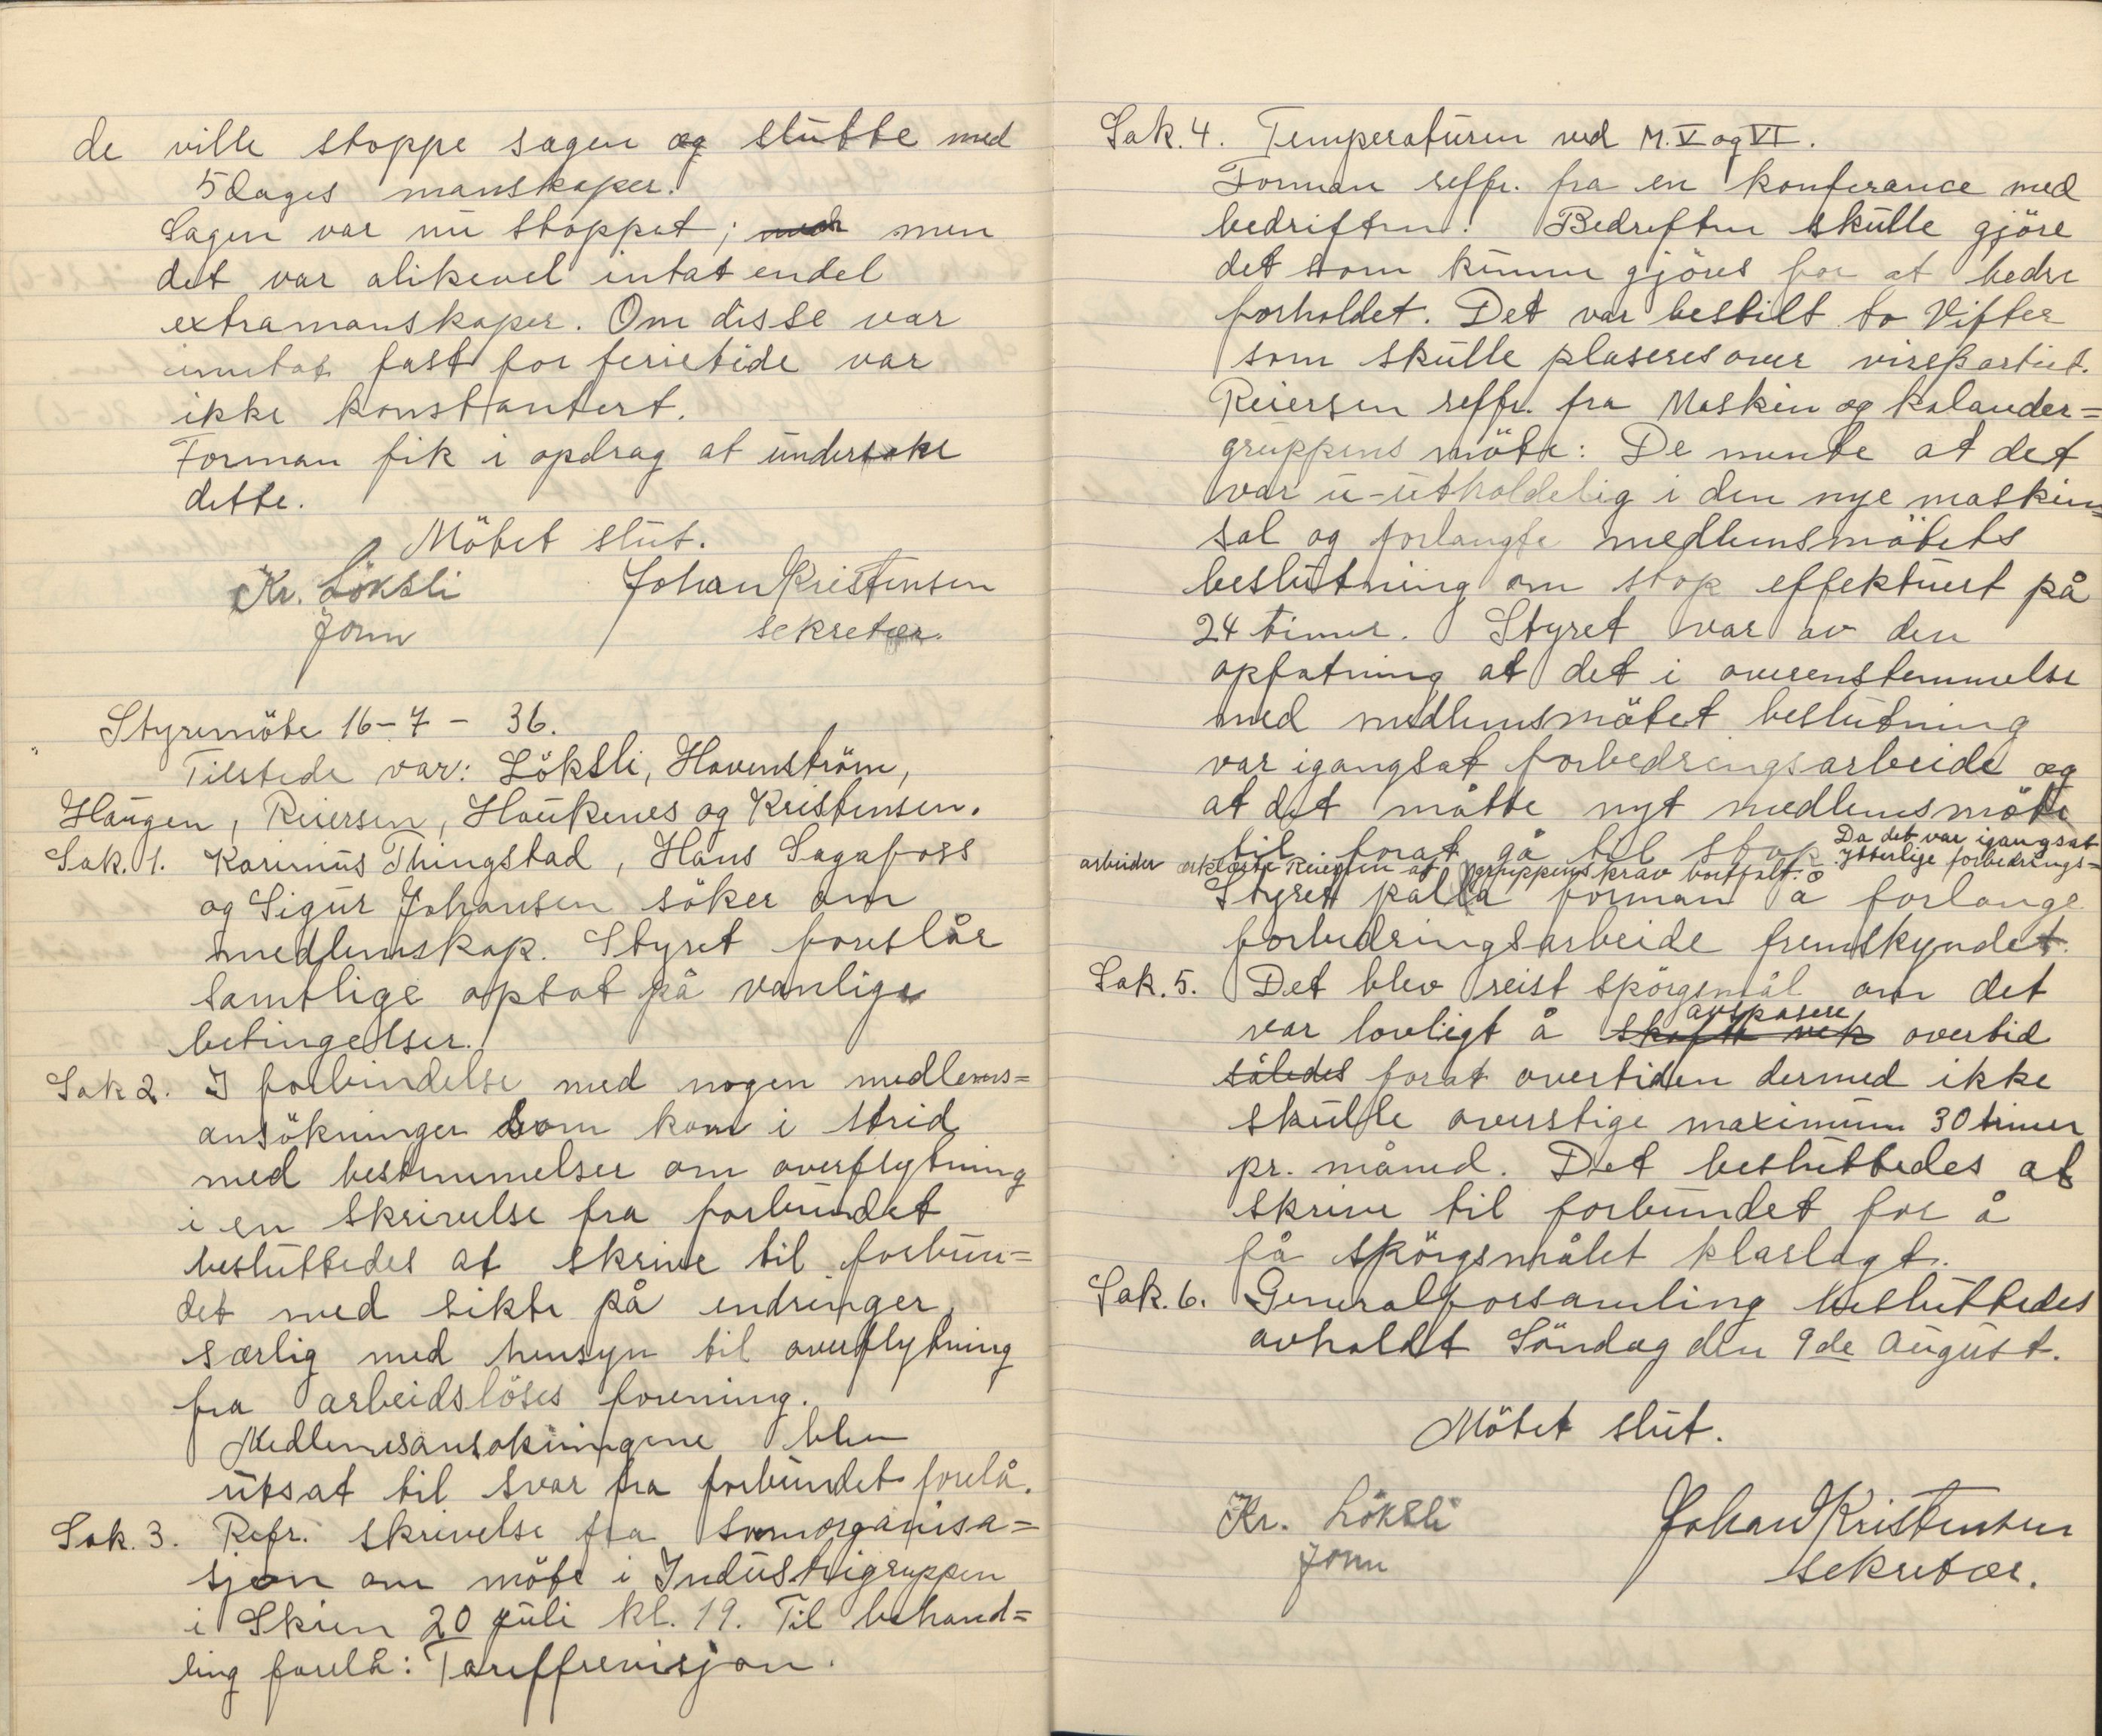 de ville stoppe sagen og slutte med
5 dages manskaper.
Sagen var nu stoppet; men men
det var alikevel intat endel
extramanskaper. Om disse var
inntat fast for ferietide var
ikke konstantert.
Forman fik i opdrag at undersøke
dette.
Mötet slut.
Kr. Löksli Johan Kristensen
form sekretær.
Styremöte 16-7-36.
Tilstede var: Löksli, Havenström,
Haugen, Reiersen, Haukenes og Kristensen.
Sak. 1. Karinius Thingstad, Hans Sagafoss
og Sigur Johansen söker om
medlemskap. Styret foreslår
samtlige optat på vanlige
betingelser.
Sak 2. I forbindelse med nogen medlems=
ansökninger som kom i strid
med bestemmelser om overflytning
i en skrivelse fra forbundet
besluttedes at skrive til forbun=
det med sikte på endringer,
særlig med hensyn til overflytning
fra arbeidslöses forening.
Medlemsansøkningene blev
utsat til svar fra forbundet forelå.
Sak. 3. Refr. skrivelse fra Samorganisa=
sjon om möte i Industrigruppen
i Skien 20 juli kl. 19. Til behand=
ling forelå: Tariffrevisjon.
Sak. 4. Temperaturen ved M. V og VI.
Forman reffr. fra en konferance med
bedriften. Bedriften skulle gjöre
det som kunne gjöres for at bedre
forholdet. Det var bestilt to Vifter
som skulle plaseres over virepartiet.
Reiersen reffr. fra Maskin og kalander=
gruppens möte: De mente at det
var u-utholdelig i den nye maskin=
sal og forlangte medlemsmötets
beslutning om stop effektuert på
24 timer. Styret var av den
opfatning at det i overenstemmelse
med medlemsmötet beslutning
var igangsat forbedringsarbeide og
at det måtte nyt medlemsmöte
til forat gå til stop. Da det var igangsat
ytterlige forbedrings=
arbeider erklærte Reiersen at gruppens krav bortfalt.
Styret påla forman å forlange
forbedringsarbeide fremskyndet.
Sak. 5. Det blev reist spörgsmål om det
var lovligt å skofte vek avspasere overtid
således forat overtiden dermed ikke
skulle overstige maximum 30 timer
pr. måned. Det besluttedes at
skrive til forbundet for å
få spörgsmålet klarlagt.
Sak. 6. Generalforsamling besluttedes
avholdt Söndag den 9de August.
Mötet slut.
Kr. Löksli Johan Kristensen
form sekretær.